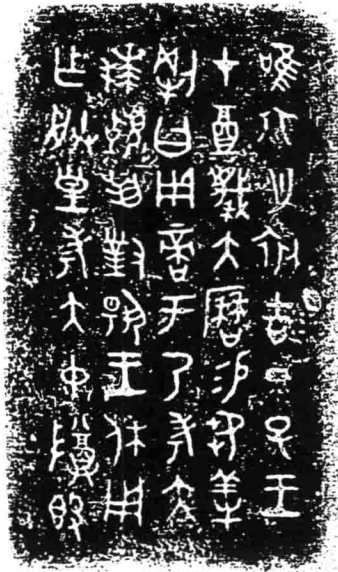 唯六月初吉丁巳王
才奠蔑大曆易芻騂
犅曰用啻于乃考大
拜稽首對揚王休用
乍朕皇考大中尊𣪘